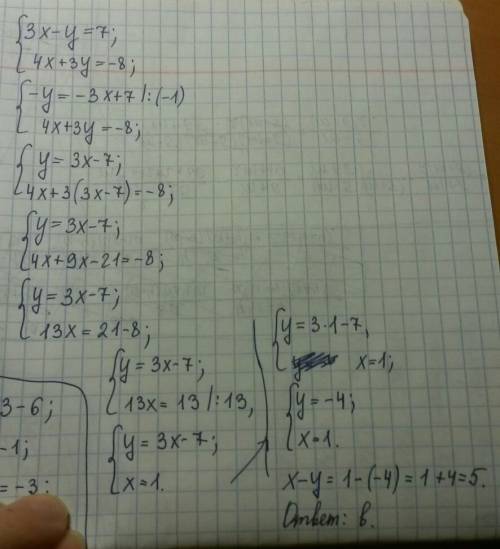 {3x-y=7;
4x+3y=-8;
{-y=-3x+7 |:(-1)
4x+3y=-8;
{y=3x-7;
4x+3(3x-7)=-8;
{y=3x-7;
4x+9x-21=-8;
{y=3x-7;
13x=21-8;
{y=3x-7;
13x=13 |:13,
{y=3x-7;
x=1.
{y=3·1-7,
x=1;
{y=-4;
x=1.
x-y=1-(-4)=1+4=5.
Ответ: в.
3-6;
-1;
=-3: